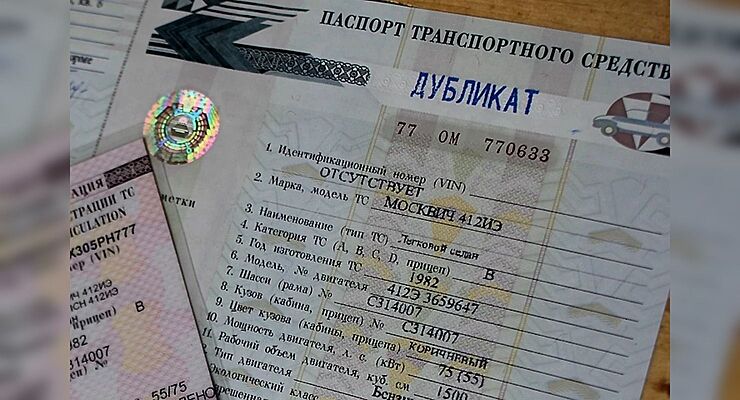 ПАСПОРТ ТРАНСПОРТНОГО СРЕДСТВ
ДУБЛИКАТ
77 ОМ 770633
1. Идентификационный номер (VIN)
ОТСУТСТВУЕТ
2. Марка, модель ТС МОСКВИЧ 412ИЭ
3. Наименование (тип ТС) Легковой седан
4. Категория ТС (A, B, C, D, прицеп) B
5. Год изготовления ТС 1982
6. Модель, № двигателя 412Э 3659647
7. Шасси (рама) № С314007
8. Кузов (кабина, прицеп) № С314007
9. Цвет кузова (кабины, прицепа) КОРИЧНЕВЫЙ
10. Мощность двигателя, л. с. (кВт) 75 (55)
11. Рабочий объем двигателя, куб. см 1500
Тип двигателя Бензин
экологический класс
метки
АЦИЯ
СТРАЦИИ ТС
ICULATION
Х305РН777
мер (VIN)
ИЧ 412ИЭ
СН 412ИЭ
прицеп) B
982
314007
прицеп) №
55/75